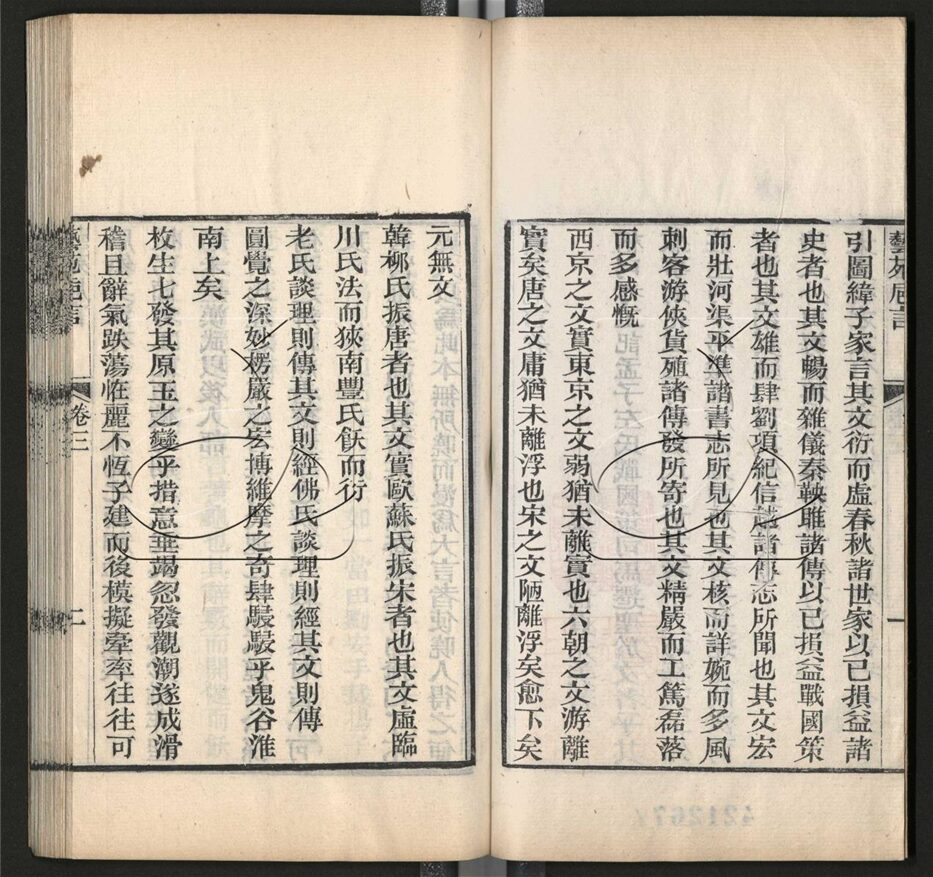 藝苑卮言
一
引圖緯子家言其文衍而虛春秋諸世家以己損益諸
史者也其文暢而雜儀秦鞅雎諸傳以己損益戰國策
者也其文雄而肆劉項紀信越諸傳志所聞也其文宏
而壯河渠平準諸書志所見也其文核而詳婉而多風
刺客游俠貨殖諸傳發所寄也其文精嚴而工篤磊落
而多感慨
西京之文實東京之文弱猶未離實也六朝之文浮離
實矣唐之文庸猶未離浮也宋之文陋離浮矣愈下矣
元無文
韓柳氏振唐者也其文實歐蘇氏振宋者也其文虛臨
川氏法而狹南豐氏飫而衍
老氏談理則傳其文則經佛氏談理則經其文則傳
圓覺之深妙楞嚴之宏博維摩之奇肆駸駸乎鬼谷淮
南上矣
枚生七發其原玉之變乎措意垂竭忽發觀潮遂成滑
稽且辭氣跌蕩怪麗不恆子建而後模擬牽率往往可
藝苑卮言
卷三
二